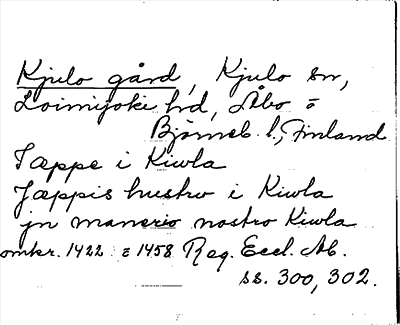 Kjulo gård, Kjulo sn,
Loimijoki hd, Åbo o
Björneb. l., Finland
Jæppe i Kiwla
Jæppis hustro i Kiwla
jn manerio nostro Kiwla
omkr. 1422 o 1458 Reg. Eccl. Ab.
ss. 300, 302.